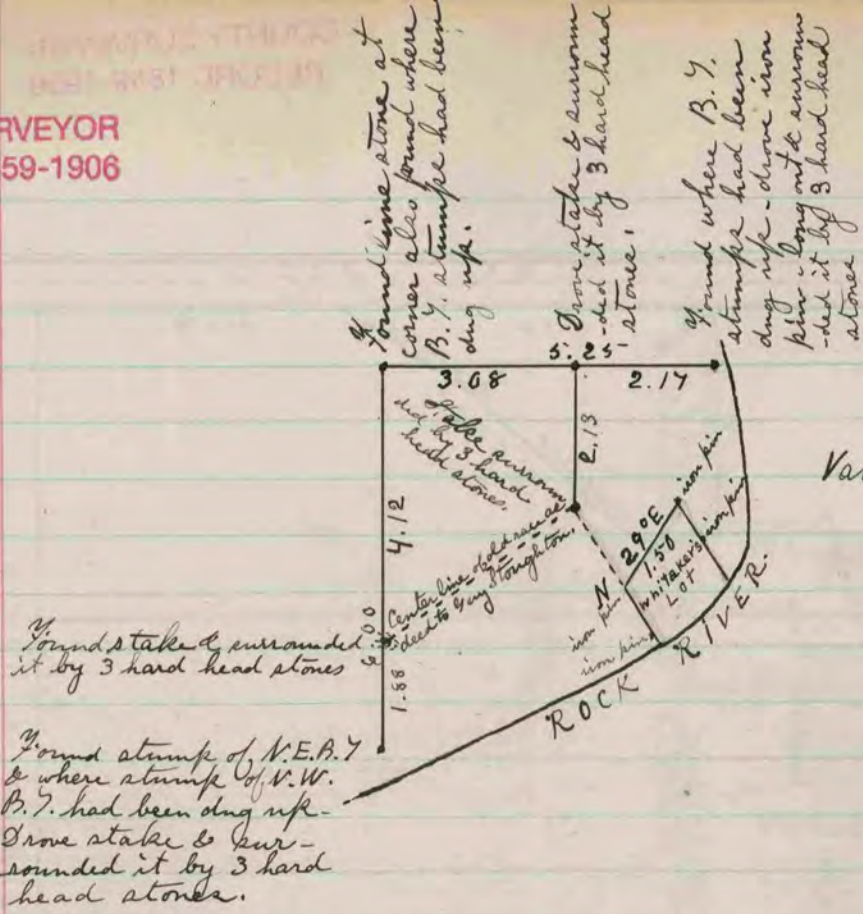 COUNTY SURVEYOR
RECORD 1859-1906
RVEYOR
59-1906
Found lime stone at
corner also found where
B.Y. stumps had been
dug up.
Drove stake & surroun
-ded it by 3 hard head
stones.
Found where B.Y.
stumps had been
dug up - drove iron
pin - long out & surroun
-ded it by 3 hard head
stones
5.25
3.08
2.17
Stake surroun
ded by 3 hard
head stones.
2.13
4.12
6.00
1.88
Center line of old race as
deed to Stoughton.
N 29°E
1.50
Whitaker's
Lot
iron pin
iron pin
iron pin
iron pin
Var
ROCK RIVER.
Found stake & surrounded
it by 3 hard head stones
Found stump of N.E.B.Y
& where stump of N.W.
B.Y. had been dug up.
Drove stake & sur-
rounded it by 3 hard
head stones.